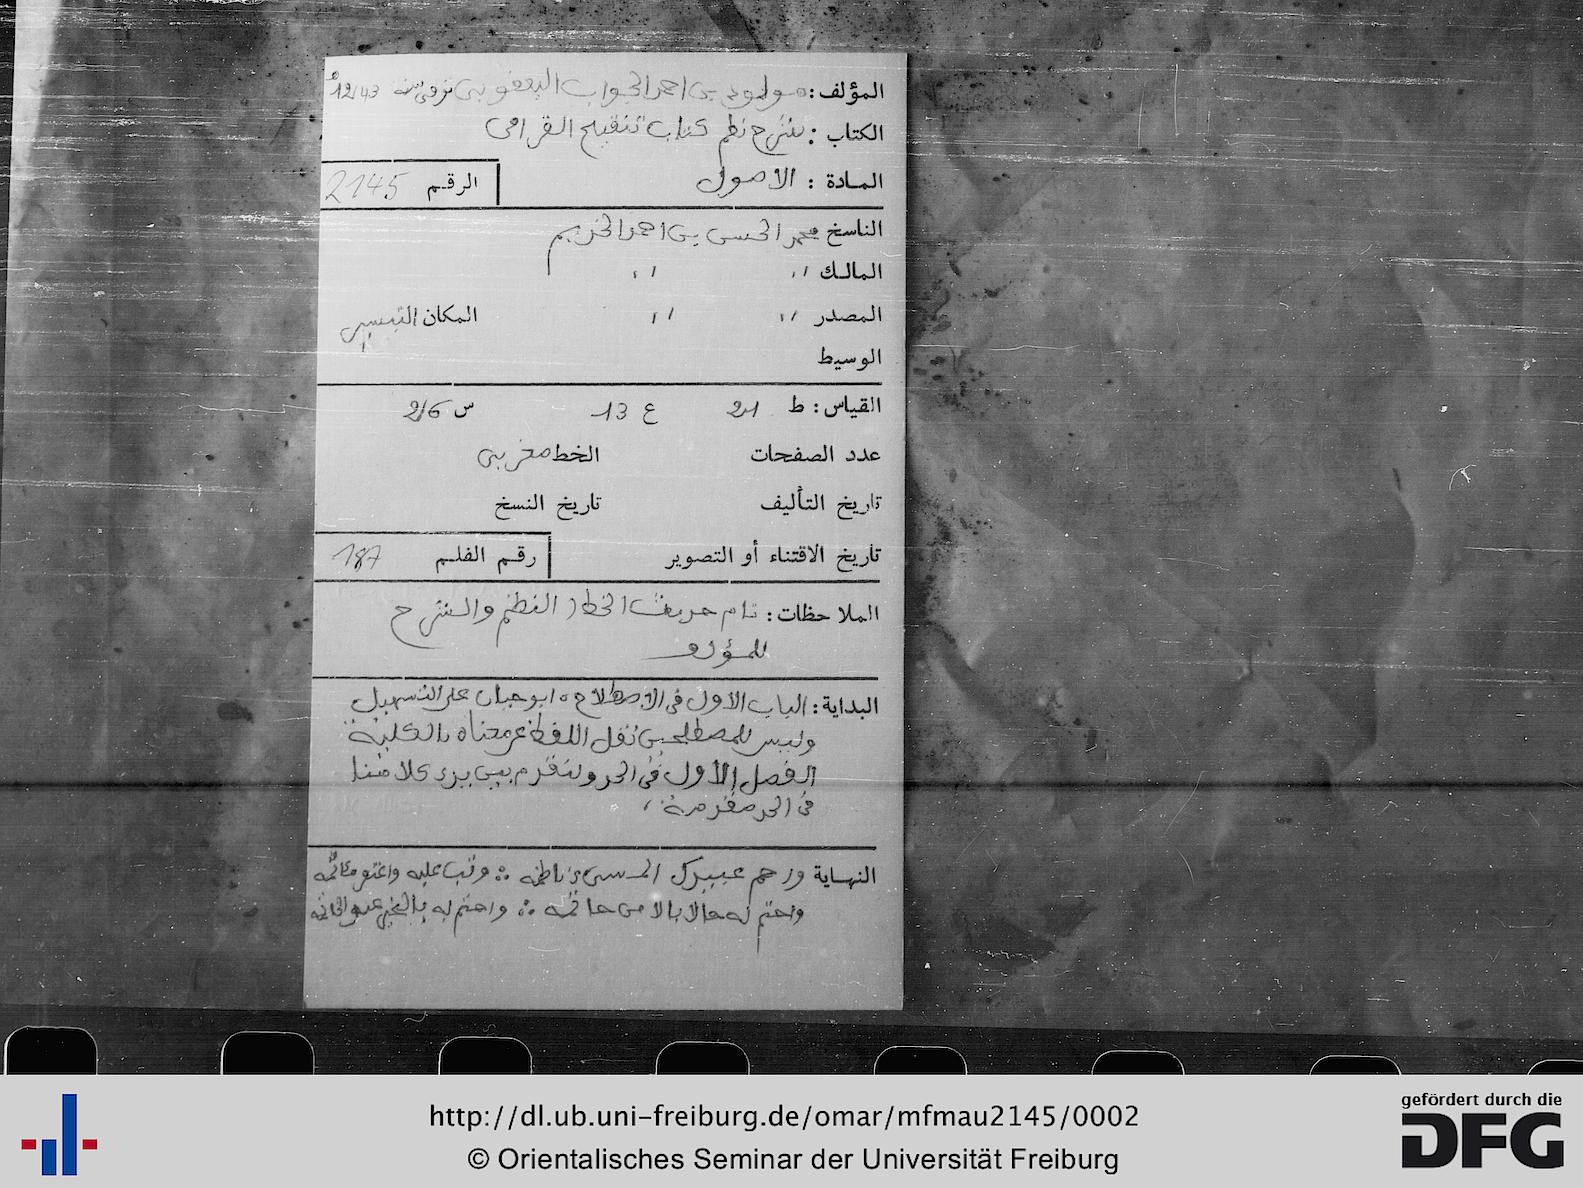 المؤلف: مولود بن احمد الجواد اليعقوبي توفي سنة 1243
الكتاب: شرح نظم كتاب تنقيح القرافي
المادة: الاصول
الرقم 2145
الناسخ محمد الحسن بن احمد الخديم
المالك ,, ,,
المصدر ,, ,, المكان التيسير
الوسيط
القياس: ط 21 ع 13 س 26
عدد الصفحات الخط مغربي
تاريخ التأليف تاريخ النسخ
تاريخ الاقتناء أو التصوير رقم الفلم 187
الملاحظات: تام حديث الخط / النظم والشرح
للمؤلف
البداية: الباب الأول في الاصطلاح، ابو حيان على التسهيل
وليس للمصطلحين نقل اللفظ عن معناه بالكلية
الفصل الأول في الحد ولنقدم بين يدي كلامنا
في الحد مقدمة،
النهاية وارحم عبيدك المسيء ناظمه ∴ وتب عليه واغتفر مآثمه
واختم له حالا بالا من خاتمه ∴ واختم له بالخير عند الخاتمه
http://dl.ub.uni-freiburg.de/omar/mfmau2145/0002
© Orientalisches Seminar der Universität Freiburg
gefördert durch die
DFG